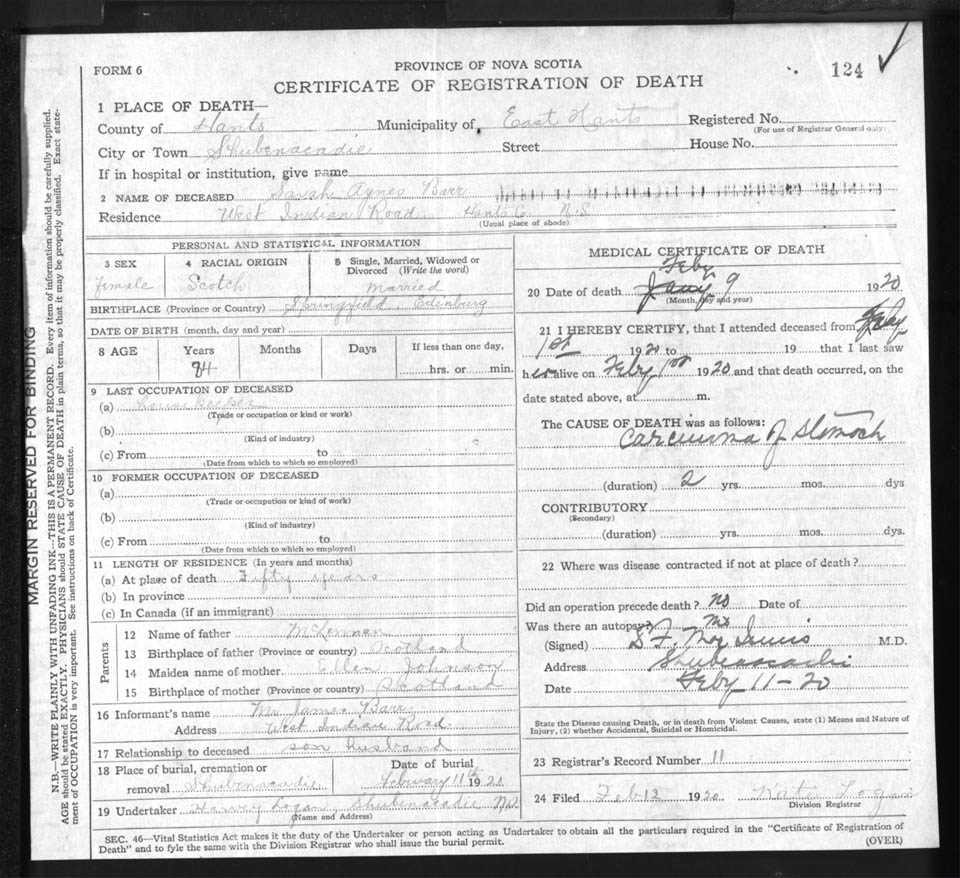 FORM 6
PROVINCE OF NOVA SCOTIA
124
CERTIFICATE OF REGISTRATION OF DEATH
1 PLACE OF DEATH—
County of Hants Municipality of East Hants Registered No.
(For use of Registrar General only)
City or Town Shubenacadie Street House No.
If in hospital or institution, give name
2 NAME OF DECEASED Sarah Agnes Barr
Residence West Indian Road Hants Co. N.S.
(Usual place of abode)
PERSONAL AND STATISTICAL INFORMATION
3 SEX
female
4 RACIAL ORIGIN
Scotch
5 Single, Married, Widowed or Divorced (Write the word)
Married
BIRTHPLACE (Province or Country) Springfield, Edenburg
DATE OF BIRTH (month, day and year)
8 AGE Years Months Days If less than one day,
hrs. or min.
9 LAST OCCUPATION OF DECEASED
(a) House keeper
(Trade or occupation or kind of work)
(b)
(Kind of industry)
(c) From to
(Date from which to which so employed)
10 FORMER OCCUPATION OF DECEASED
(a)
(Trade or occupation or kind of work)
(b)
(Kind of industry)
(c) From to
(Date from which to which so employed)
11 LENGTH OF RESIDENCE (In years and months)
(a) At place of death Fifty years
(b) In province
(c) In Canada (if an immigrant)
Parents
12 Name of father McLennan
13 Birthplace of father (Province or country) Scotland
14 Maiden name of mother Ellen Johnson
15 Birthplace of mother (Province or country) Scotland
16 Informant's name Mr James Barr
Address West Indian Road
17 Relationship to deceased son husband
18 Place of burial, cremation or removal Shubenacadie
Date of burial
February 11th 1920
19 Undertaker Harvey Logan, Shubenacadie NS
(Name and Address)
MEDICAL CERTIFICATE OF DEATH
Feby
20 Date of death Jany 9 1920
(Month, day and year)
21 I HEREBY CERTIFY, that I attended deceased from Feby
1st 1920 to 19 that I last saw
her alive on Feby 1st 1920 and that death occurred, on the
date stated above, at m.
The CAUSE OF DEATH was as follows:
Carcinoma of Stomach
(duration) 2 yrs. mos. dys
CONTRIBUTORY
(Secondary)
(duration) yrs. mos. dys.
22 Where was disease contracted if not at place of death?
Did an operation precede death? No Date of
Was there an autopsy? No
(Signed) D F M.D.
Address Shubenacadie
Date Feby 11-20
State the Disease causing Death, or in death from Violent Causes, state (1) Means and Nature of
Injury, (2) whether Accidental, Suicidal or Homicidal.
23 Registrar's Record Number 11
24 Filed Feb 12 1920 Kate Logan
Division Registrar
SEC. 46—Vital Statistics Act makes it the duty of the Undertaker or person acting as Undertaker to obtain all the particulars required in the "Certificate of Registration of
Death" and to fyle the same with the Division Registrar who shall issue the burial permit.
(OVER)
MARGIN RESERVED FOR BINDING
N.B.—WRITE PLAINLY WITH UNFADING INK—THIS IS A PERMANENT RECORD. Every item of information should be carefully supplied.
AGE should be stated EXACTLY. PHYSICIANS should STATE CAUSE OF DEATH in plain terms, so that it may be properly classified. Exact state-
ment of OCCUPATION is very important. See instructions on back of Certificate.